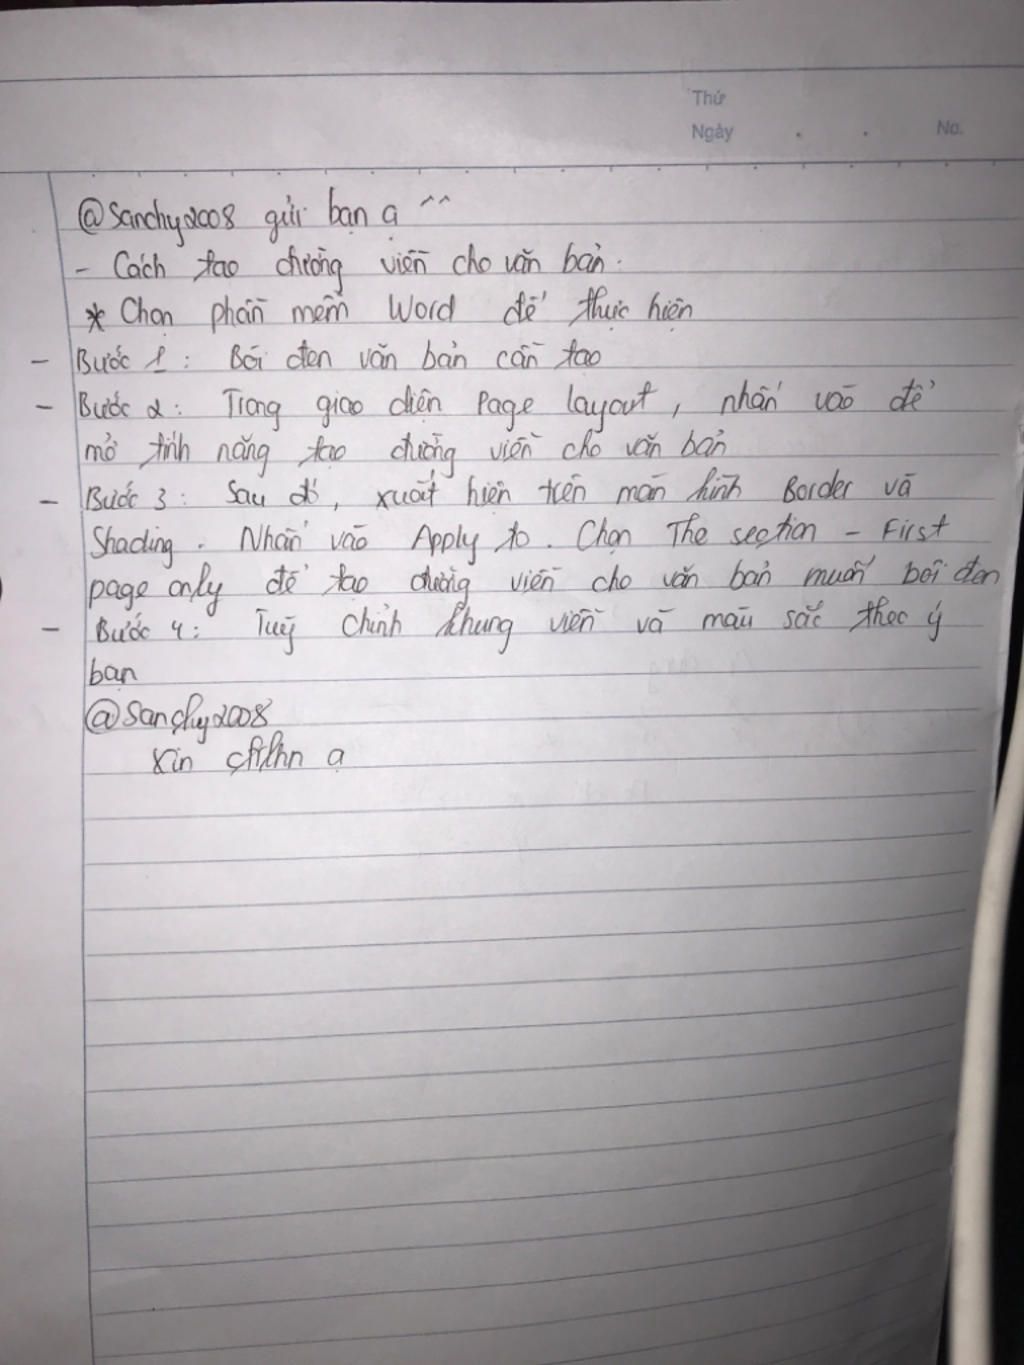 Thứ
Ngày . . No.
@Sanchy2008 gửi bạn ạ ^^
- Cách tạo đường viền cho văn bản.
* Chọn phần mềm Word để thực hiện
- Bước 1 : Bôi đen văn bản cần tạo
- Bước 2 : Trong giao diện Page layout , nhấn vào để
mở tính năng tạo đường viền cho văn bản
- Bước 3 : Sau đó , xuất hiện trên màn hình Border và
Shading . Nhấn vào Apply to . Chọn The section - First
page only để tạo đường viền cho văn bản muốn bôi đen
- Bước 4 : Tuỳ chỉnh khung viền và màu sắc theo ý
bạn
@Sanchy2008
Xin ạ